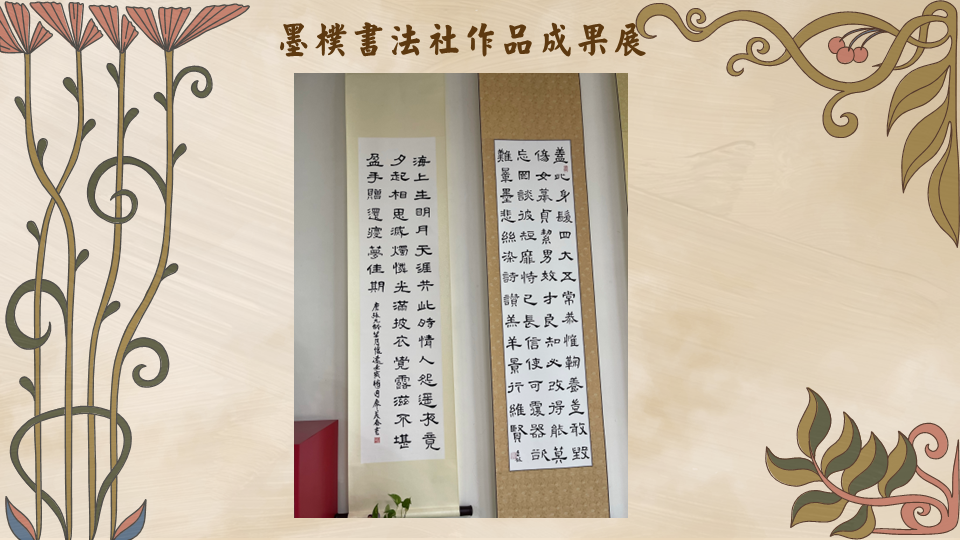 墨樸書法社作品成果展
蓋此身髮四大五常恭惟鞠養豈敢毀
傷女慕貞絜男效才良知必改得能莫
忘罔談彼短靡恃己長信使可覆器欲
難量墨悲絲染詩讚羔羊景行維賢
海上生明月天涯共此時情人怨遥夜竟
夕起相思滅燭憐光滿披衣覺露滋不堪
盈手贈還寢夢佳期
唐張九齡望月懷遠